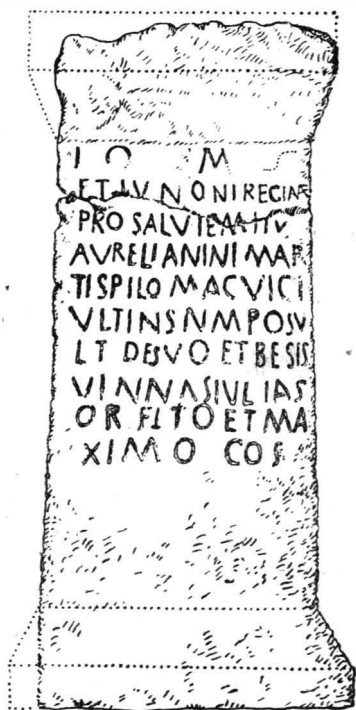 I O M
ET IVNONI REGINAE
PRO SALVTE
AVRELIANINI MAR
TISPILO MACVICI
VLTINSNMPOSV
LT DESVO ET BESIS
VINNASIVLIAS
ORFITO ET MA
XIMO COS